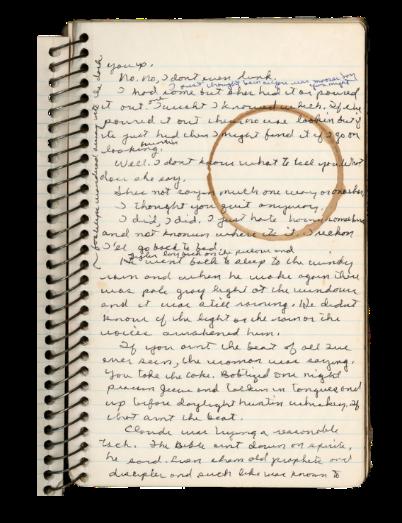 you up.
No. No, I dont even drink.
I just thought bein as you was
I had some but she hid it or poured
it out. I wisht I knowed which. If she
poured it out theres no use lookin but if
its just hid then I might find it if I go on
looking.
huntin
Well. I dont know what to tell you. What
does she say.
Shes not sayin much one way or another
I thought you quit anyway.
I did, I did. I just hate havin somethin
and not knowin where its at. I reckon
I'll go back to bed.
He went back to sleep to the windy
rain and when he woke again there
was pale gray light at the windows
and it was still raining. He didnt
know if the light or the rain or the
voices awakened him.
If you aint the beat of all Ive
ever seen, the woman was saying.
You take the cake. Baptized one night
Jesus and talkin in tongues and
up before daylight huntin whiskey. If
that aint the beat.
Claude was trying a reasonable
tack. The Bible aint down on spirits,
he said. Even them old prophets and
disciples and such like was known to